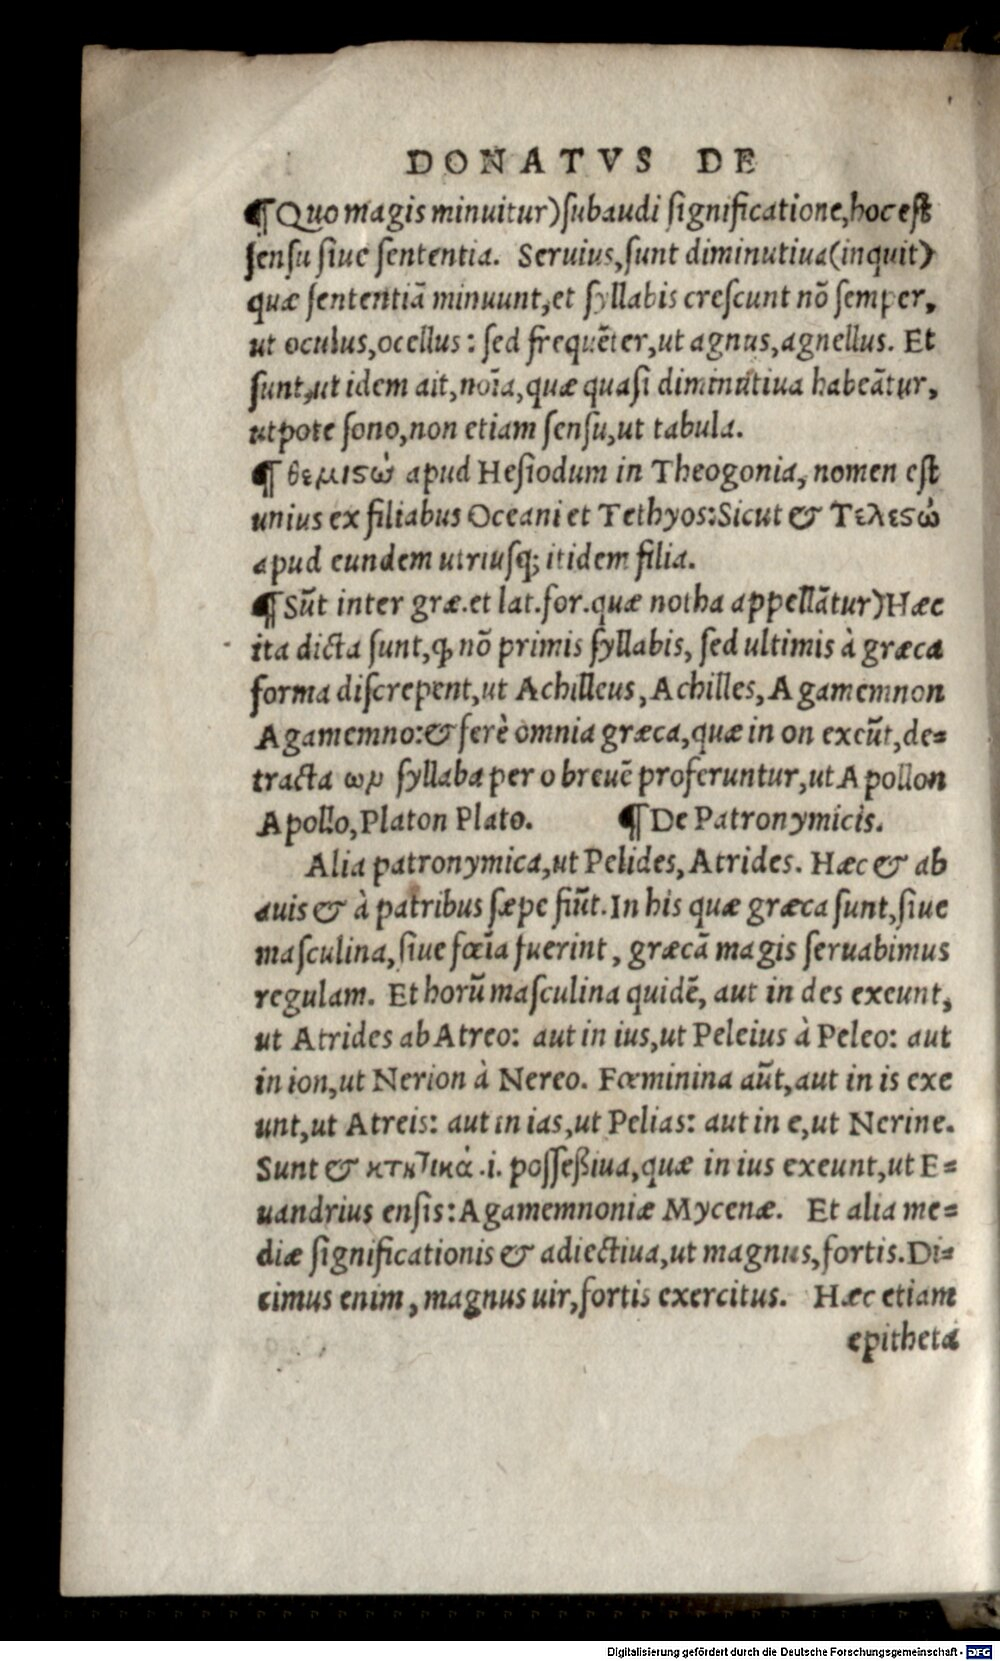 DONATVS DE
¶ Quo magis minuitur) ſubaudi ſignificatione, hoc eſt
ſenſu ſiue ſententia. Seruius, ſunt diminutiua (inquit)
quæ ſententiā minuunt, et ſyllabis creſcunt nō ſemper,
ut oculus, ocellus: ſed frequēter, ut agnus, agnellus. Et
ſunt, ut idem ait, noīa, quæ quaſi diminutiua habeātur,
utpote ſono, non etiam ſenſu, ut tabula.
¶ θεμιϛὼ apud Heſiodum in Theogonia, nomen eſt
unius ex filiabus Oceani et Tethyos: Sicut & Τελεϛὼ
apud eundem utriuſq; itidem filia.
¶ Sūt inter græ. et lat. for. quæ notha appellātur) Hæc
ita dicta ſunt, ꝙ nō primis ſyllabis, ſed ultimis à græca
forma diſcrepent, ut Achilleus, Achilles, Agamemnon
Agamemno: & ferè omnia græca, quæ in on exeūt, de=
tracta ων ſyllaba per o breuē proferuntur, ut Apollon
Apollo, Platon Plato. ¶ De Patronymicis.
Alia patronymica, ut Pelides, Atrides. Hæc & ab
auis & à patribus ſæpe fiūt. In his quæ græca ſunt, ſiue
maſculina, ſiue fœīa fuerint, græcā magis ſeruabimus
regulam. Et horū maſculina quidē, aut in des exeunt,
ut Atrides ab Atreo: aut in ius, ut Peleius à Peleo: aut
in ion, ut Nerion à Nereo. Fœminina aūt, aut in is exe
unt, ut Atreis: aut in ias, ut Pelias: aut in e, ut Nerine.
Sunt & κτητικὰ .i. poſſeßiua, quæ in ius exeunt, ut E=
uandrius enſis: Agamemnoniæ Mycenæ. Et alia me=
diæ ſignificationis & adiectiua, ut magnus, fortis. Di=
cimus enim, magnus uir, fortis exercitus. Hæc etiam
epitheta
Digitalisierung gefördert durch die Deutsche Forschungsgemeinschaft - DFG